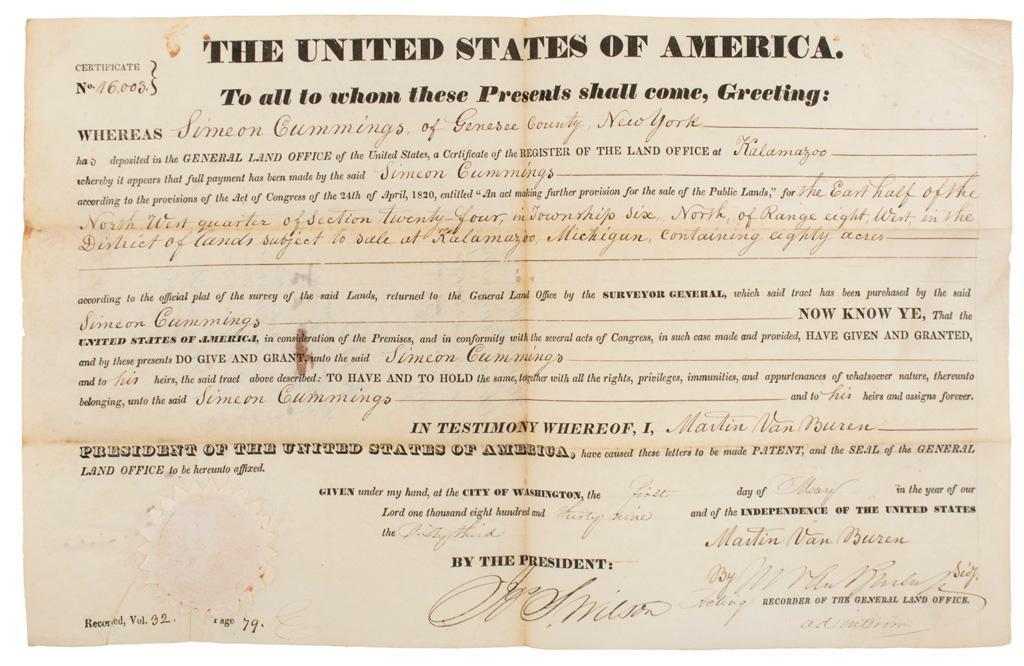 THE UNITED STATES OF AMERICA.
CERTIFICATE
No. 16.003.}
To all to whom these Presents shall come, Greeting:
WHEREAS Simeon Cummings, of Genesee County, New York
has deposited in the GENERAL LAND OFFICE of the United States, a Certificate of the REGISTER OF THE LAND OFFICE at Kalamazoo
whereby it appears that full payment has been made by the said Simeon Cummings
according to the provisions of the Act of Congress of the 24th of April, 1820, entitled "An act making further provision for the sale of the Public Lands," for the East half of the
North West quarter of Section twenty four, in Township six, North, of Range eight, West in the
District of lands subject to sale at Kalamazoo, Michigan, containing eighty acres
according to the official plat of the survey of the said Lands, returned to the General Land Office by the SURVEYOR GENERAL, which said tract has been purchased by the said
Simeon Cummings NOW KNOW YE, That the
UNITED STATES OF AMERICA, in consideration of the Premises, and in conformity with the several acts of Congress, in such case made and provided, HAVE GIVEN AND GRANTED,
and by these presents DO GIVE AND GRANT, unto the said Simeon Cummings
and to his heirs, the said tract above described: TO HAVE AND TO HOLD the same, together with all the rights, privileges, immunities, and appurtenances of whatsoever nature, thereunto
belonging, unto the said Simeon Cummings and to his heirs and assigns forever.
IN TESTIMONY WHEREOF, I, Martin Van Buren
PRESIDENT OF THE UNITED STATES OF AMERICA, have caused these letters to be made PATENT, and the SEAL of the GENERAL
LAND OFFICE to be hereunto affixed.
GIVEN under my hand, at the CITY OF WASHINGTON, the first day of May in the year of our
Lord one thousand eight hundred and thirty nine and of the INDEPENDENCE OF THE UNITED STATES
the Sixty third
Martin Van Buren
BY THE PRESIDENT:
By M Van Buren Jr Secy.
S. Wilson
Acting RECORDER OF THE GENERAL LAND OFFICE.
ad interim
Recorded, Vol. 32. Page 79.